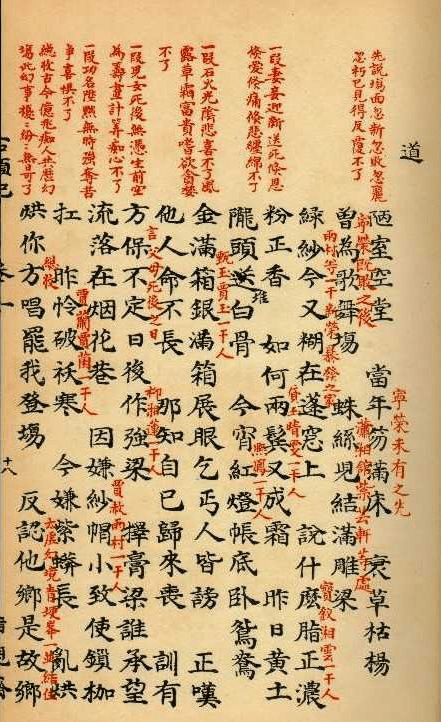 先說塲面忽新忽敗忽麗
忽朽已見得反覆不了
一段妻妾迎新送死倐恩
倐愛倐痛倐悲纏綿不了
一段石火光陰悲喜不了風
露草霜富貴嗜欲貪婪
不了
一段兒女死後無憑生前空
為籌畫計筭痴心不了
一段功名陞黜無時強奪苦
争喜惧不了
總收古今億兆痴人共歷幻
塲此幻事擾擾紛紛無日可了
道
寧榮未有之先
陋室空堂　當年笏滿床　衰草枯楊
寧榮既敗之後
瀟湘舘紫芸軒等處
曾為歌舞塲　蛛絲兒結滿雕梁
雨村等一干新榮暴發之家
寶釵湘雲一干人
綠紗今又糊在蓬窓上　說什麽脂正濃
黛玉晴雯一干人
粉正香　如何兩鬓又成霜　昨日黄土
熙鳳一干人
隴頭送白骨　今宵紅燈帳底卧鴛鴦
堆
甄玉賈玉一干人
金滿箱銀滿箱展眼乞丐人皆謗　正嘆
他人命不長　那知自己歸來喪　訓有
言父母死後之日
柳湘蓮一干人
方保不定日後作強梁　擇膏梁誰承望
賈赦雨村一干人
流落在烟花巷　因嫌紗帽小致使鎖枷
賈蘭賈菌一干人
扛　昨怜破袄寒　今嫌紫蟒長　亂烘
總收
太虛幻境青埂峯一並結住
烘你方唱罷我登塲　反認他鄉是故鄉
石頭記　卷一　十八